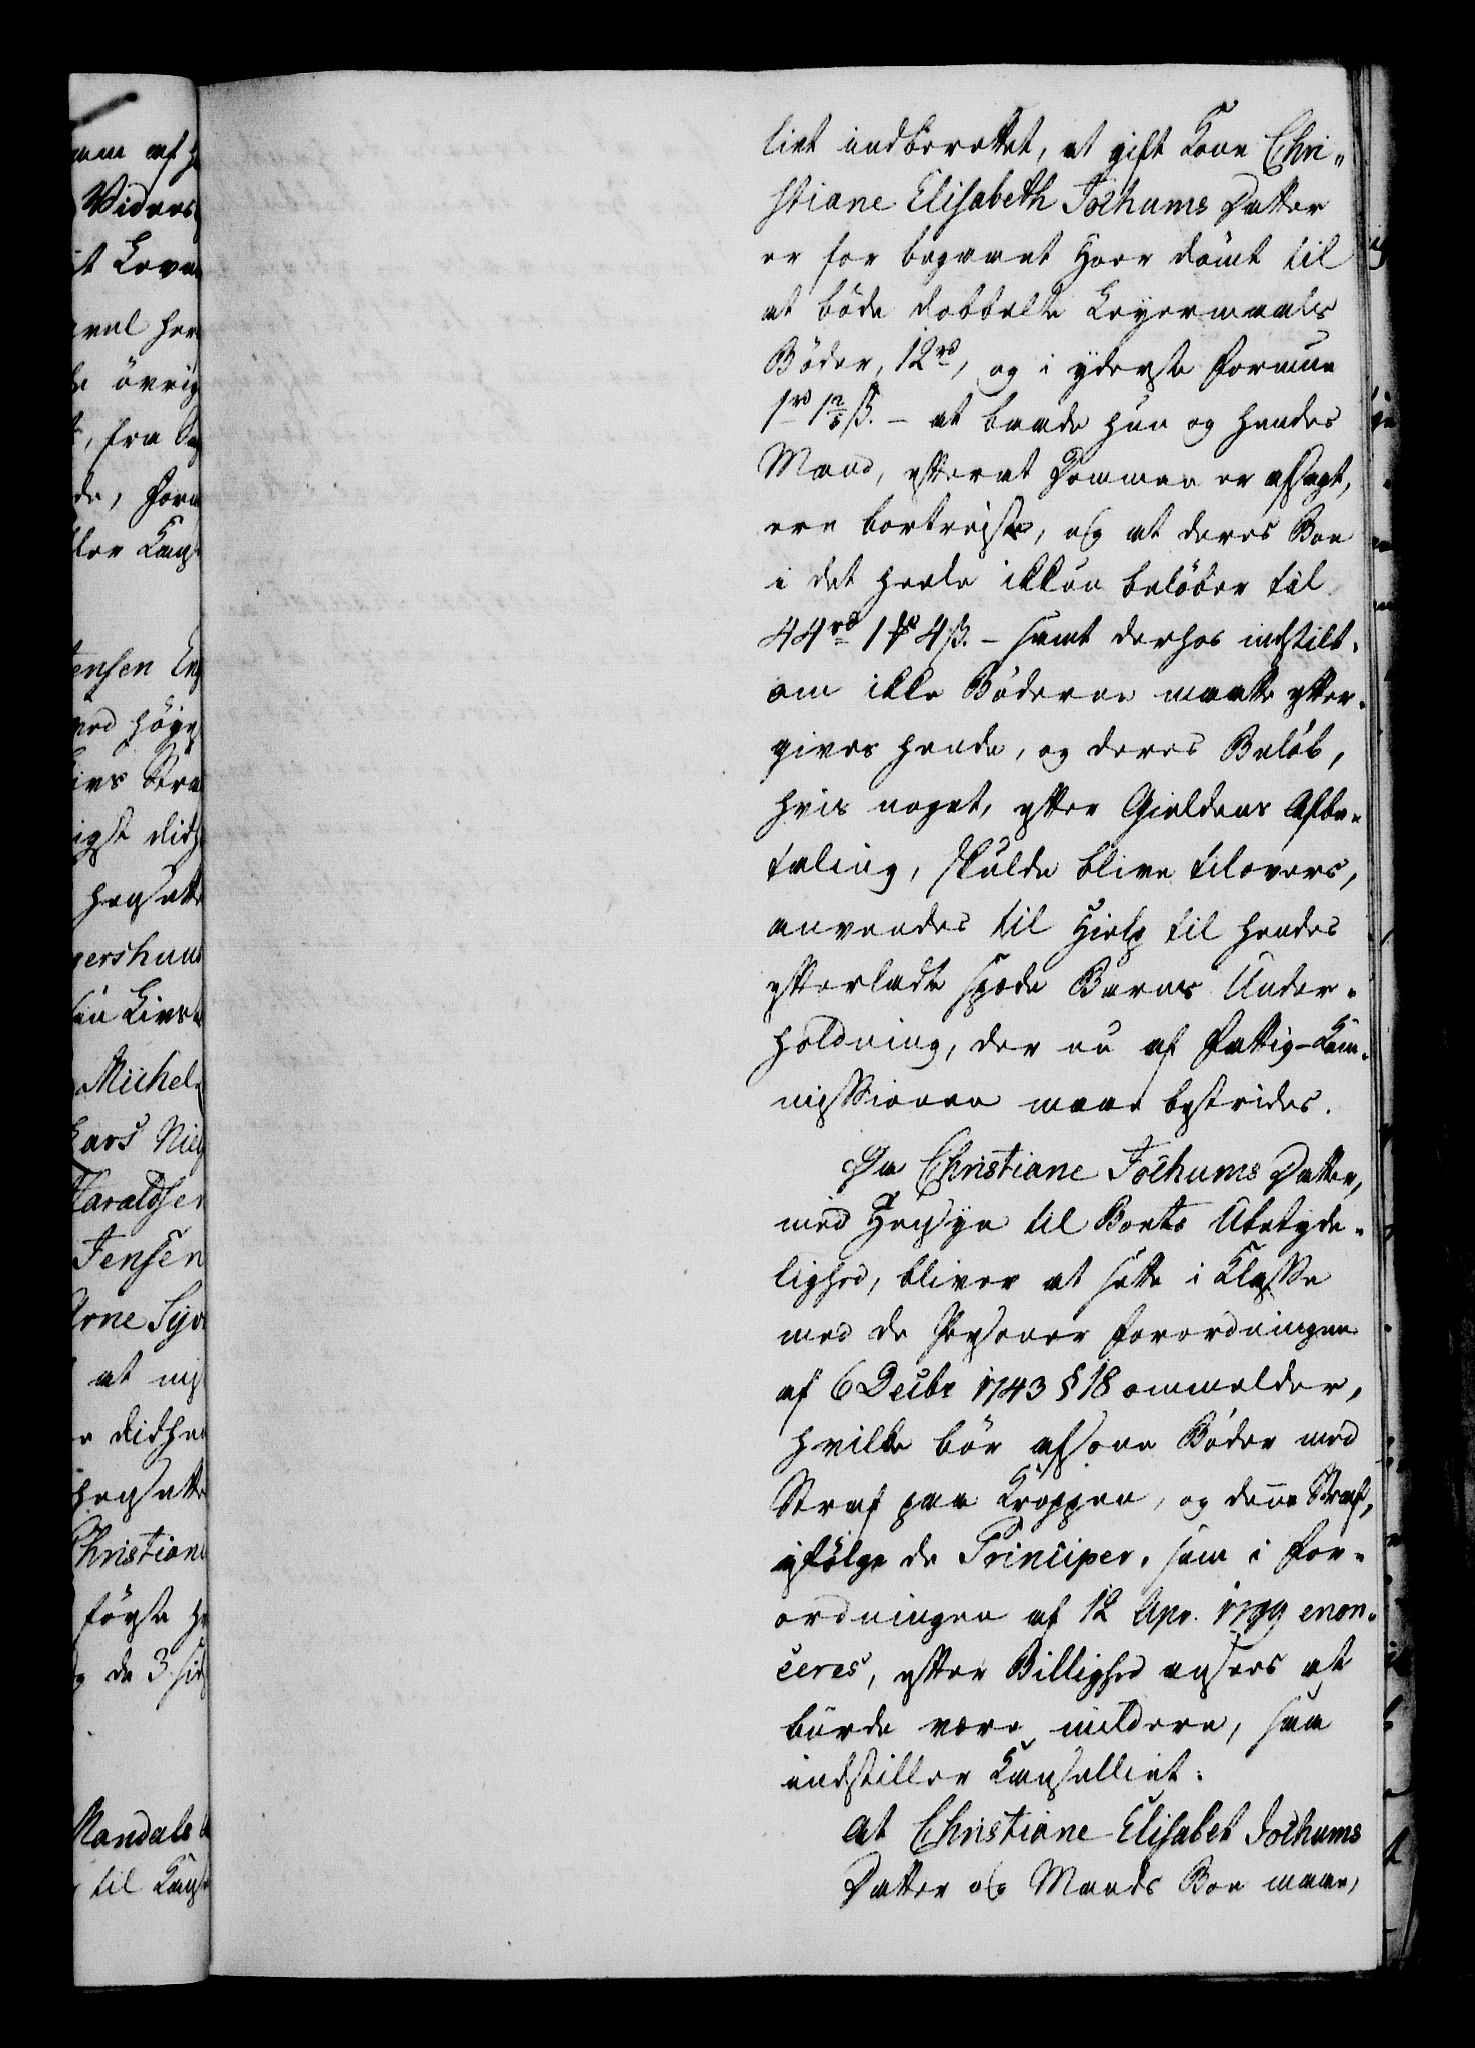 liet indberettet, at gift Kone Chri„
stiane Elisabeth Jochums Datter
er for begaaet Hoer dömt til
at böde dobbelte Leyermaals
Böder, 12 rd, og i yderste Formue
1 rd 1 ß. – at baade hun og hendes
Mand, efterat Dommen er afsagt,
ere bortreiste, og at deres Boe
i det heele ikkun belöber til
44 rd 1 4 ß. – samt derhos indstilt.
om ikke Böderne maatte efter„
gives hende, og deres Belöb,
hvis noget, efter Gieldens Afbe„
taling, skulde blive tilovers,
anvendes til Hielp til hendes
efterladte spæde Barns Under„
holdning, der nu af Fattig-Kom„
missionen maae bestrides.
Da Christiane Jochums Datter,
med Hensyn til Boets Ubetyde„
lighed, bliver at sætte i Klasse
med de Personer Forordningen
af 6 Decbr 1743 § 18 ommelder,
hvilke bör afsone Böder med
Straf paa Kroppen, og denne Straf,
ifölge de Principer, som i For„
ordningen af 12 Apr. 1799 enon„
ceres, efter Billighed ansees at
burde være mildere, saa
indstiller Kanselliet:
At Christiane Elisabet Jochums
Datter og Mands Boe maae,